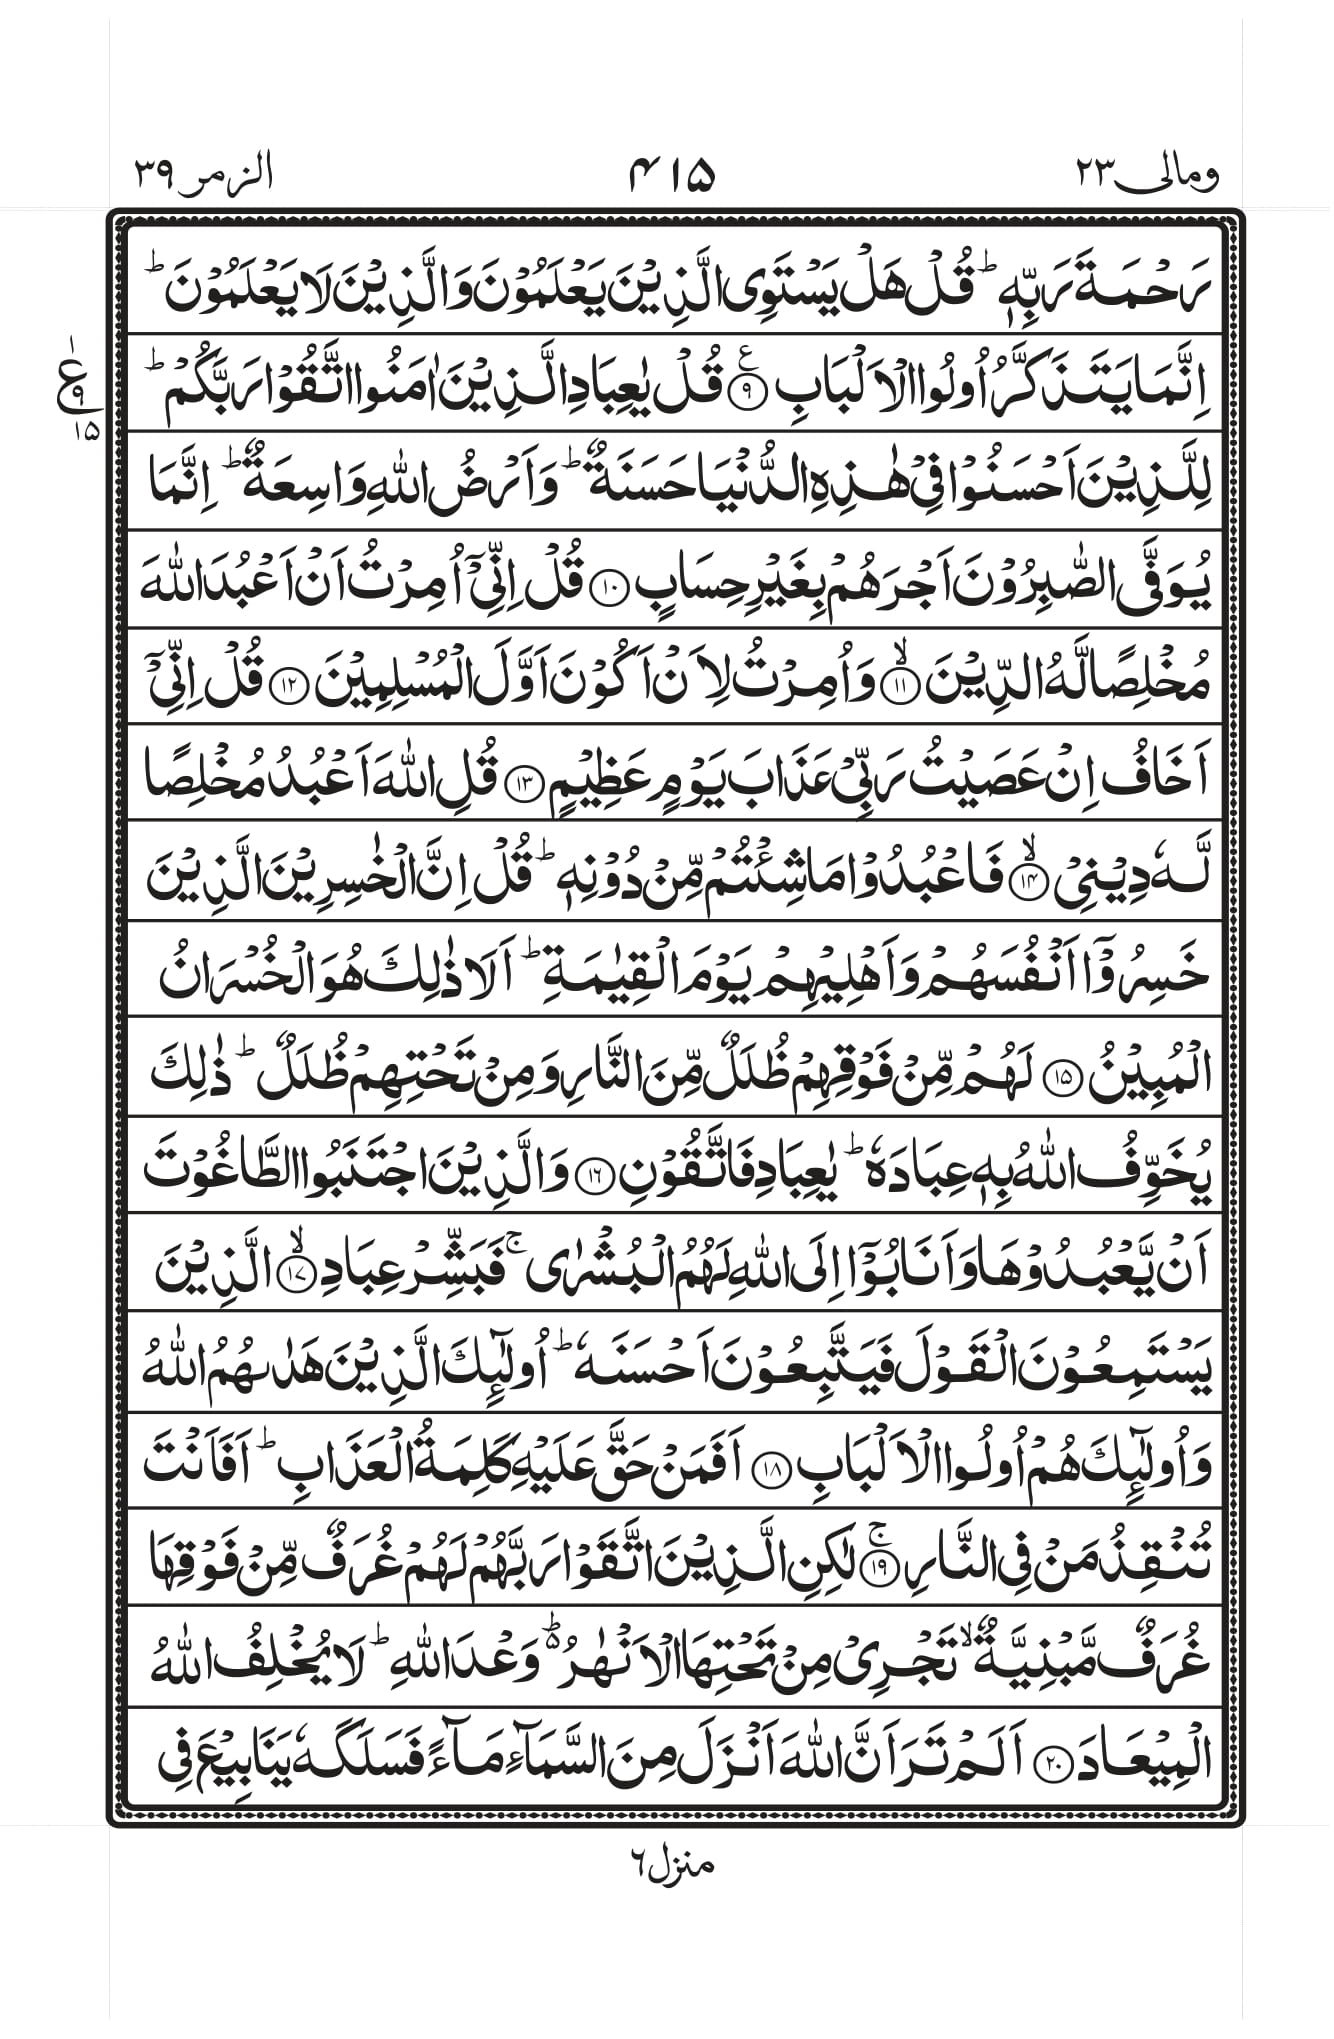 ومالی ۲۳
۴۱۵
الزمر ۳۹
رَحْمَةَ رَبِّهٖ ؕ قُلْ هَلْ يَسْتَوِى الَّذِيْنَ يَعْلَمُوْنَ وَالَّذِيْنَ لَا يَعْلَمُوْنَ ؕ
اِنَّمَا يَتَذَكَّرُ اُولُوا الْاَلْبَابِ ﴿۹﴾ قُلْ يٰعِبَادِ الَّذِيْنَ اٰمَنُوا اتَّقُوْا رَبَّكُمْ ؕ
ع
۱
۹
۱۵
لِلَّذِيْنَ اَحْسَنُوْا فِىْ هٰذِهِ الدُّنْيَا حَسَنَةٌ ؕ وَاَرْضُ اللّٰهِ وَاسِعَةٌ ؕ اِنَّمَا
يُوَفَّى الصّٰبِرُوْنَ اَجْرَهُمْ بِغَيْرِ حِسَابٍ ﴿۱۰﴾ قُلْ اِنِّىْۤ اُمِرْتُ اَنْ اَعْبُدَ اللّٰهَ
مُخْلِصًا لَّهُ الدِّيْنَ ۙ﴿۱۱﴾ وَاُمِرْتُ لِاَنْ اَكُوْنَ اَوَّلَ الْمُسْلِمِيْنَ ﴿۱۲﴾ قُلْ اِنِّىْۤ
اَخَافُ اِنْ عَصَيْتُ رَبِّىْ عَذَابَ يَوْمٍ عَظِيْمٍ ﴿۱۳﴾ قُلِ اللّٰهَ اَعْبُدُ مُخْلِصًا
لَّهٗ دِيْنِىْ ۙ﴿۱۴﴾ فَاعْبُدُوْا مَا شِئْتُمْ مِّنْ دُوْنِهٖ ؕ قُلْ اِنَّ الْخٰسِرِيْنَ الَّذِيْنَ
خَسِرُوْۤا اَنْفُسَهُمْ وَاَهْلِيْهِمْ يَوْمَ الْقِيٰمَةِ ؕ اَلَا ذٰلِكَ هُوَ الْخُسْرَانُ
الْمُبِيْنُ ﴿۱۵﴾ لَهُمْ مِّنْ فَوْقِهِمْ ظُلَلٌ مِّنَ النَّارِ وَمِنْ تَحْتِهِمْ ظُلَلٌ ؕ ذٰلِكَ
يُخَوِّفُ اللّٰهُ بِهٖ عِبَادَهٗ ؕ يٰعِبَادِ فَاتَّقُوْنِ ﴿۱۶﴾ وَالَّذِيْنَ اجْتَنَبُوا الطَّاغُوْتَ
اَنْ يَّعْبُدُوْهَا وَاَنَابُوْۤا اِلَى اللّٰهِ لَهُمُ الْبُشْرٰى ۚ فَبَشِّرْ عِبَادِ ۙ﴿۱۷﴾ الَّذِيْنَ
يَسْتَمِعُوْنَ الْقَوْلَ فَيَتَّبِعُوْنَ اَحْسَنَهٗ ؕ اُولٰٓئِكَ الَّذِيْنَ هَدٰىهُمُ اللّٰهُ
وَاُولٰٓئِكَ هُمْ اُولُوا الْاَلْبَابِ ﴿۱۸﴾ اَفَمَنْ حَقَّ عَلَيْهِ كَلِمَةُ الْعَذَابِ ؕ اَفَاَنْتَ
تُنْقِذُ مَنْ فِى النَّارِ ۚ﴿۱۹﴾ لٰكِنِ الَّذِيْنَ اتَّقَوْا رَبَّهُمْ لَهُمْ غُرَفٌ مِّنْ فَوْقِهَا
غُرَفٌ مَّبْنِيَّةٌ ۙ تَجْرِىْ مِنْ تَحْتِهَا الْاَنْهٰرُ ۬ؕ وَعْدَ اللّٰهِ ؕ لَا يُخْلِفُ اللّٰهُ
الْمِيْعَادَ ﴿۲۰﴾ اَلَمْ تَرَ اَنَّ اللّٰهَ اَنْزَلَ مِنَ السَّمَآءِ مَآءً فَسَلَكَهٗ يَنَابِيْعَ فِى
منزل ٦